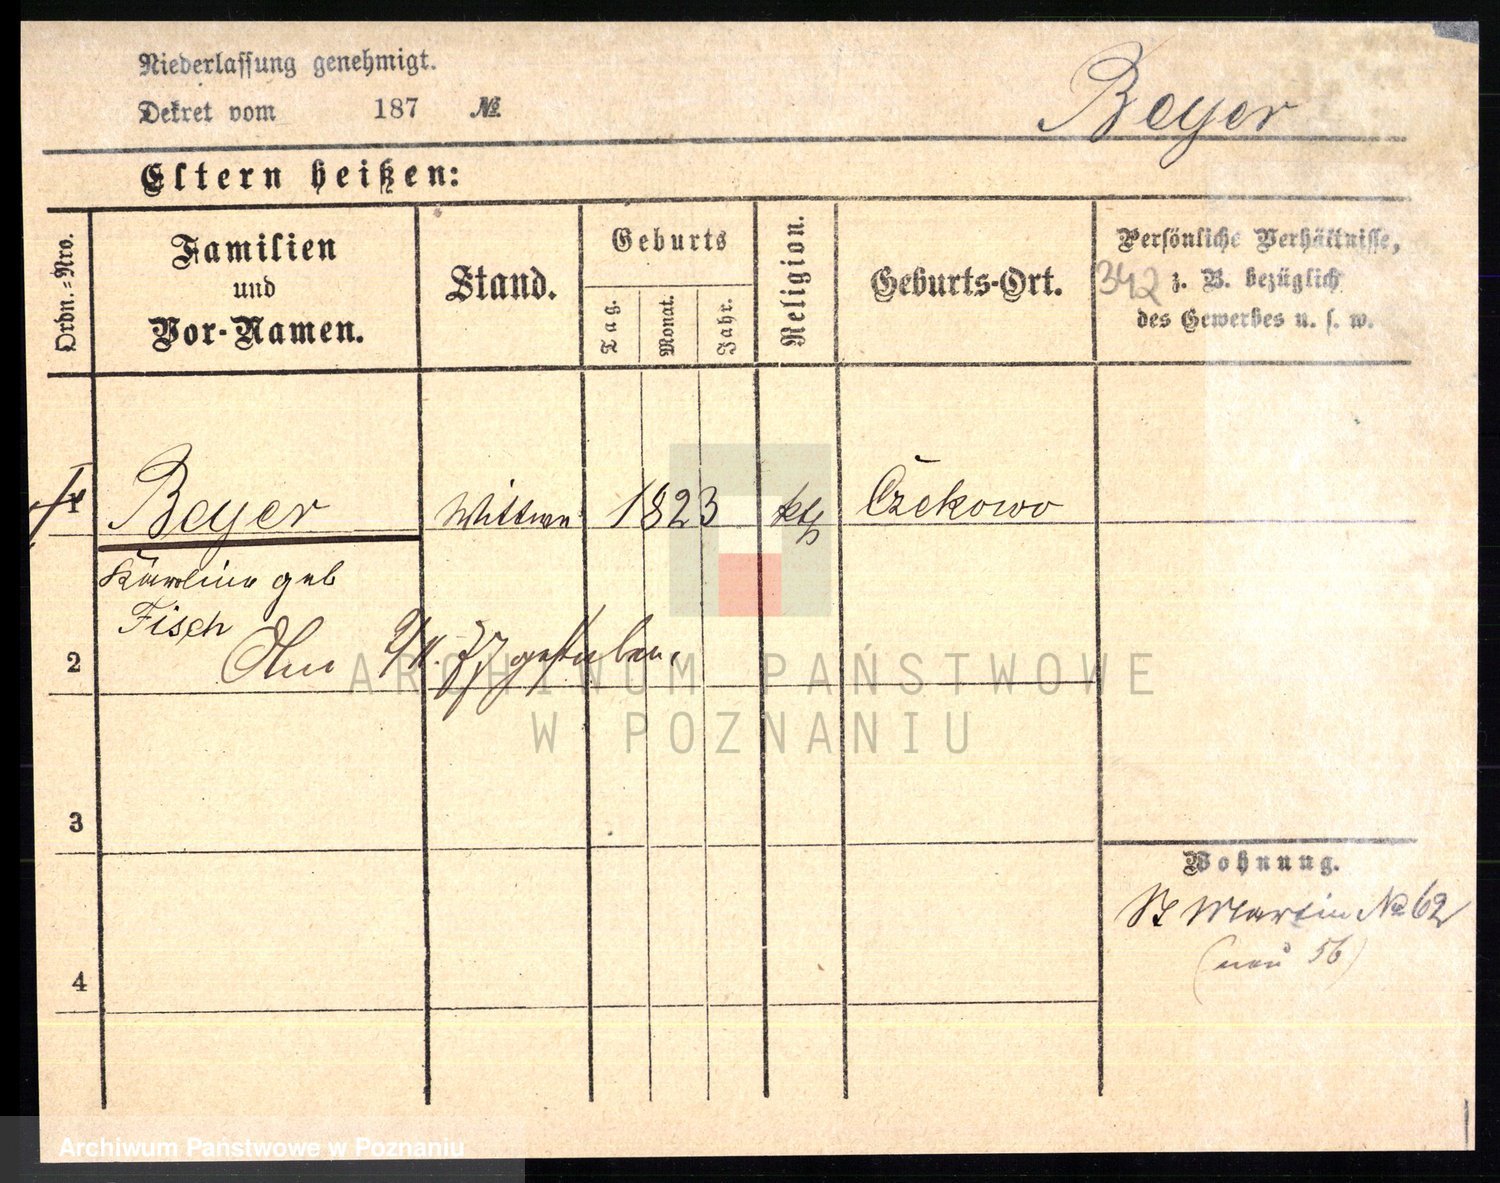 Niederlassung genehmigt.
Dekret vom 187 №
Beyer
Eltern heißen:
Ordn.=Nro.
Familien
und
Vor-Namen.
Stand.
Geburts
Tag.
Monat.
Jahr.
Religion.
Geburts-Ort.
Persönliche Verhältnisse,
z. B. bezüglich
des Gewerbes u. s. w.
342
1 Beyer Wittwe 1823 kth Czekowo
Karoline geb
Fisch
2 Am 9/11. 77 gestorben.
ARCHIWUM PAŃSTWOWE
W POZNANIU
3
Wohnung.
St Martin № 62
(neu 56)
4
Archiwum Państwowe w Poznaniu